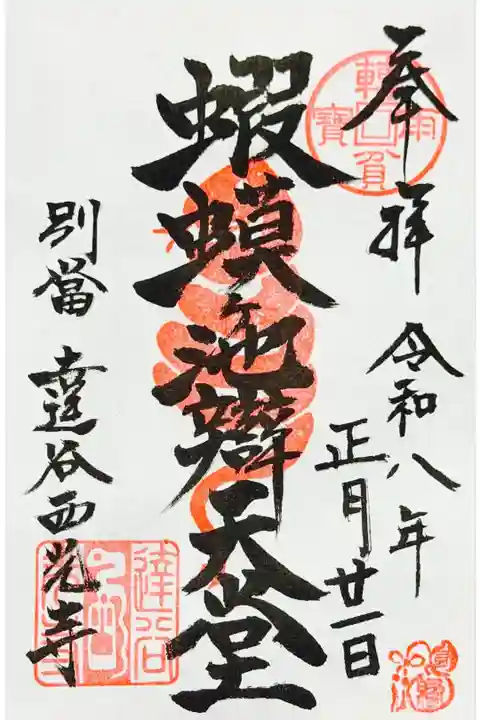 奉拝
令和八年
正月廿一日
蝦蟆ヶ池辯天堂
別當 達谷西光寺